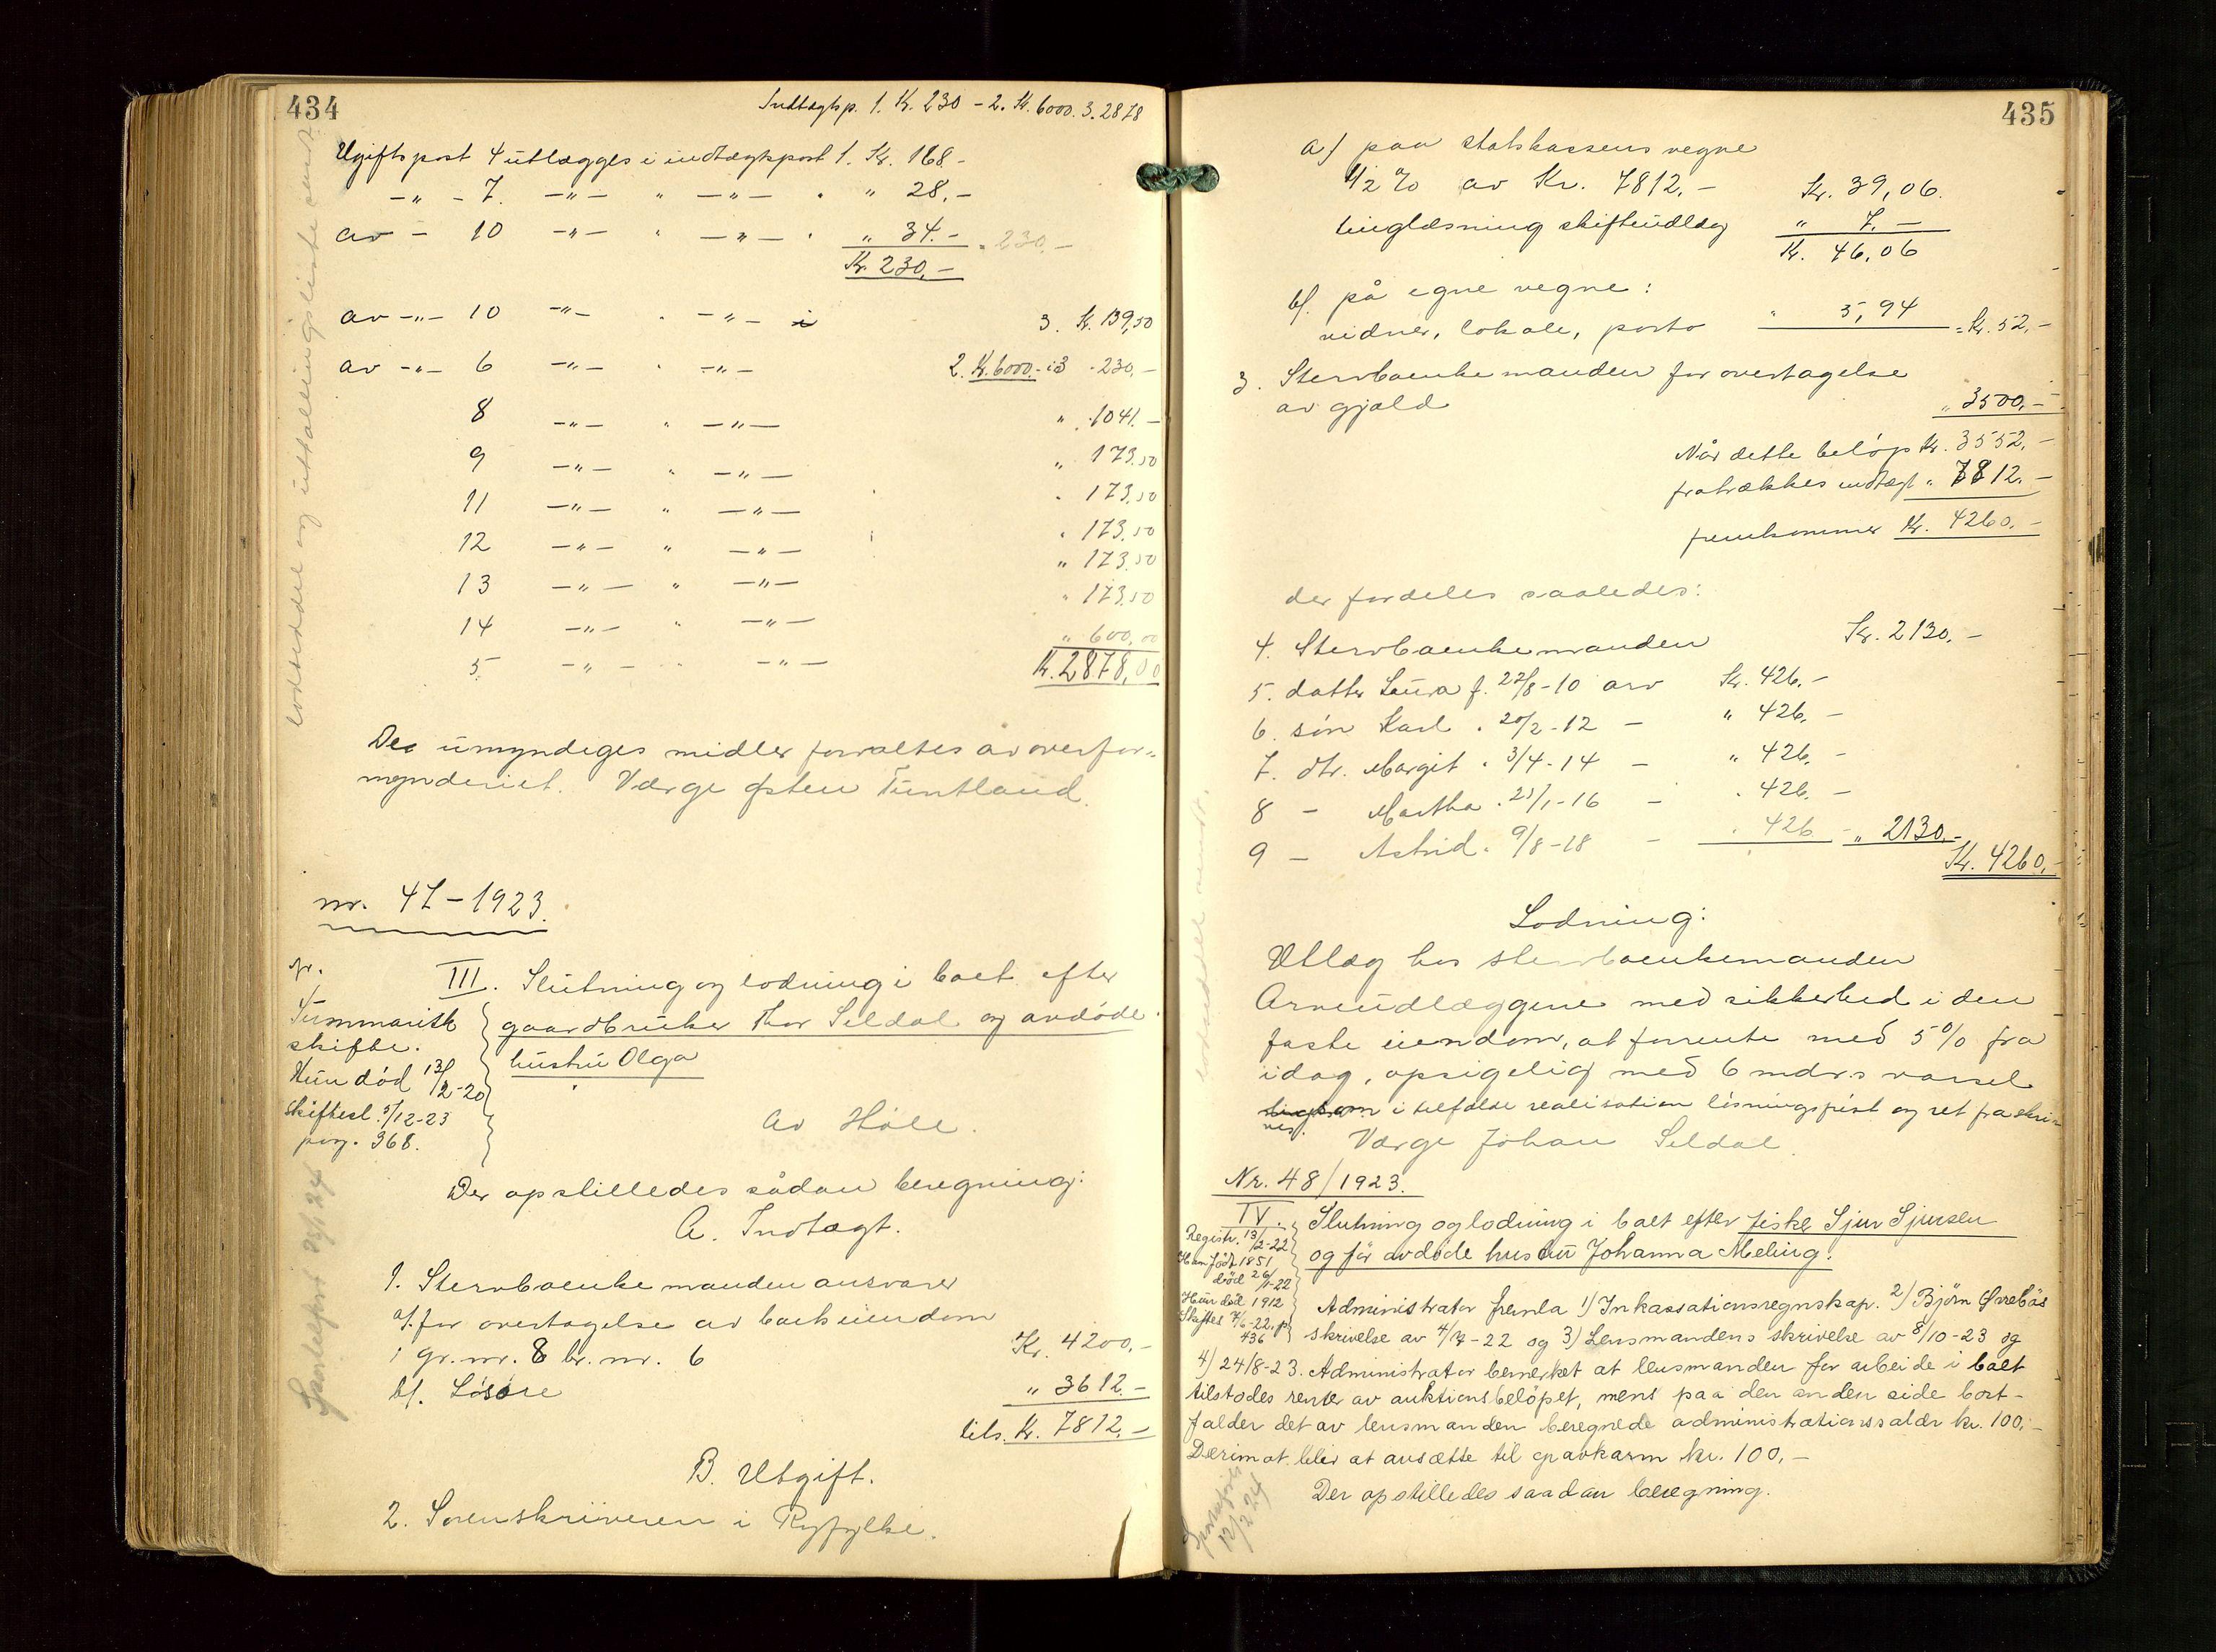 434
Indtægtsp. 1. Kr. 230 - 2. Kr. 6000. 3. 2878
Utgiftspost 4 utlægges i indtægtspost 1. Kr. 168 -
-"- - 7. -"- " -"- " " 28.-
av - 10 -"- " -"- " " 34.- = 230.-
Kr. 230,-
av -"- 10 -"- " -"- i 3. Kr. 139,50
av -"- 6 -"- " -"- 2. Kr. 6000.- i 3 - 230,-
8 -"- " -"- " 1041.-
9 -"- " -"- " 173.50
11 -"- " -"- " 173.50
12 -"- " -"- " 173.50
13 -"- " -"- " 173.50
14 -"- " -"- " 173.50
5. -"- " -"- " 600,00
Kr. 2878,00
lodseddel og uttallingsliste sendt.
De umyndiges midler forvaltes av overfor-
mynderiet. Værge Østen Tuntland.
nr. 47-1923.
III. Slutning og lodning i boet efter
gaardbruker Thor Seldal og avdøde
hustru Olga
Summarisk
skifte.
Hun död 13/2-20
Skiftesl. 5/12-23
pag. 368.
av Höle.
Der opstilledes sådan beregning:
A. Indtægt.
1. Stervboenkemanden ansvarer
a/. for overtagelse av boets eiendom
i gr. nr. 8 br. nr. 6 Kr. 4200,-
b/. Lösöre " 3612.-
tils. Kr. 7812.-
B. Utgift.
2. Sorenskriveren i Ryfylke.
435
a/ paa statskassens vegne
1/2 % av Kr. 7812.- Kr. 39,06.
tinglæsning skifteudlæg " 7.-
Kr. 46,06
b/. på egne vegne:
vidner, lokale, porto " 5,94 = Kr. 52,-
3. Stervboenkemanden for overtagelse
av gjæld " 3500,-
Når dette beløp Kr. 3552,-
fratrækkes indtægt " 7812.-
fremkommer Kr. 4260.-
der fordeles saaledes:
4. Stervboenkemanden Kr. 2130,-
5. datter Laura f. 22/8-10 arv Kr. 426,-
6. sön Karl " 20/2-12 - " 426,-
7. dtr. Margit " 3/4-14 - " 426,-
8 - Martha " 21/1-16 - " 426,-
9 - Astrid " 9/8-18 - " 426 - " 2130,-
Kr. 4260,-
Lodning:
Utlæg hos stervboenkemanden
Arveudlæggene med sikkerhed i den
faste eiendom, at forrente med 5% fra
idag, opsigelig med 6 mdr.s varsel
i tilfælde realisation lösningspist og ret fraskri-
ves. Værge Johan Seldal
lodseddel sendt.
Nr. 48/1923.
IV. Slutning og lodning i boet efter fisker Sjur Sjursen
og før avdøde hustru Johanna Meling.
Registr. 13/2-22
Han född 1851
död 26/1-22
Hun död 1912
Skiftes 7/6-22, p.
436
Administrator fremla 1) Inkassationsregnskap. 2) Björn Örrebös
skrivelse av 4/7-22 og 3) Lensmandens skrivelse av 8/10-23 og
4) 24/8-23. Administrator bemerket at lensmanden for arbeide i boet
tilstodes renter av auktionsbelöpet, mens paa den anden side bort-
falder det av lensmanden beregnede administrationssalær kr. 100,-
Derimot blir at ansætte til gravkarm kr. 100,-
Der opstilledes saadan beregning.